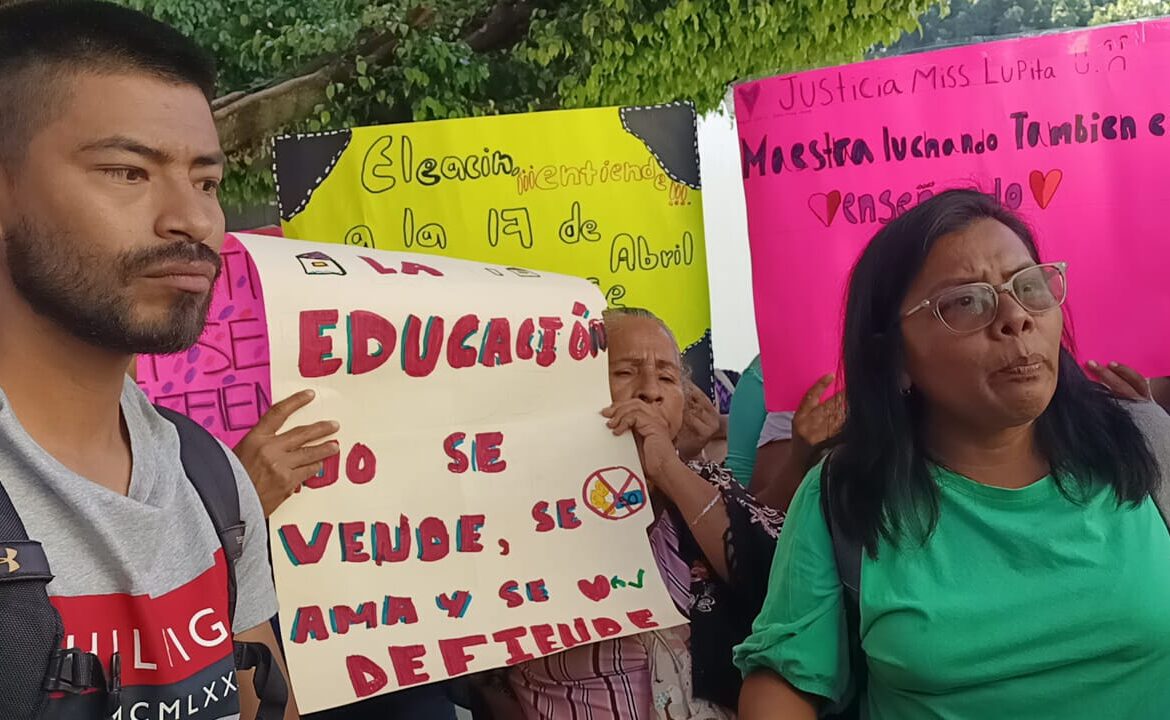 Eleacin, ¡¡¡entiende!!!
a la 17 de Abril
se
JUSTICIA MISS LUPITA
Maestra luchando También e
enseñando
LA
EDUCACIÓN
NO SE
VENDE, SE
AMA Y SE
DEFIENDE
SE
HILFIG
MCMLXX